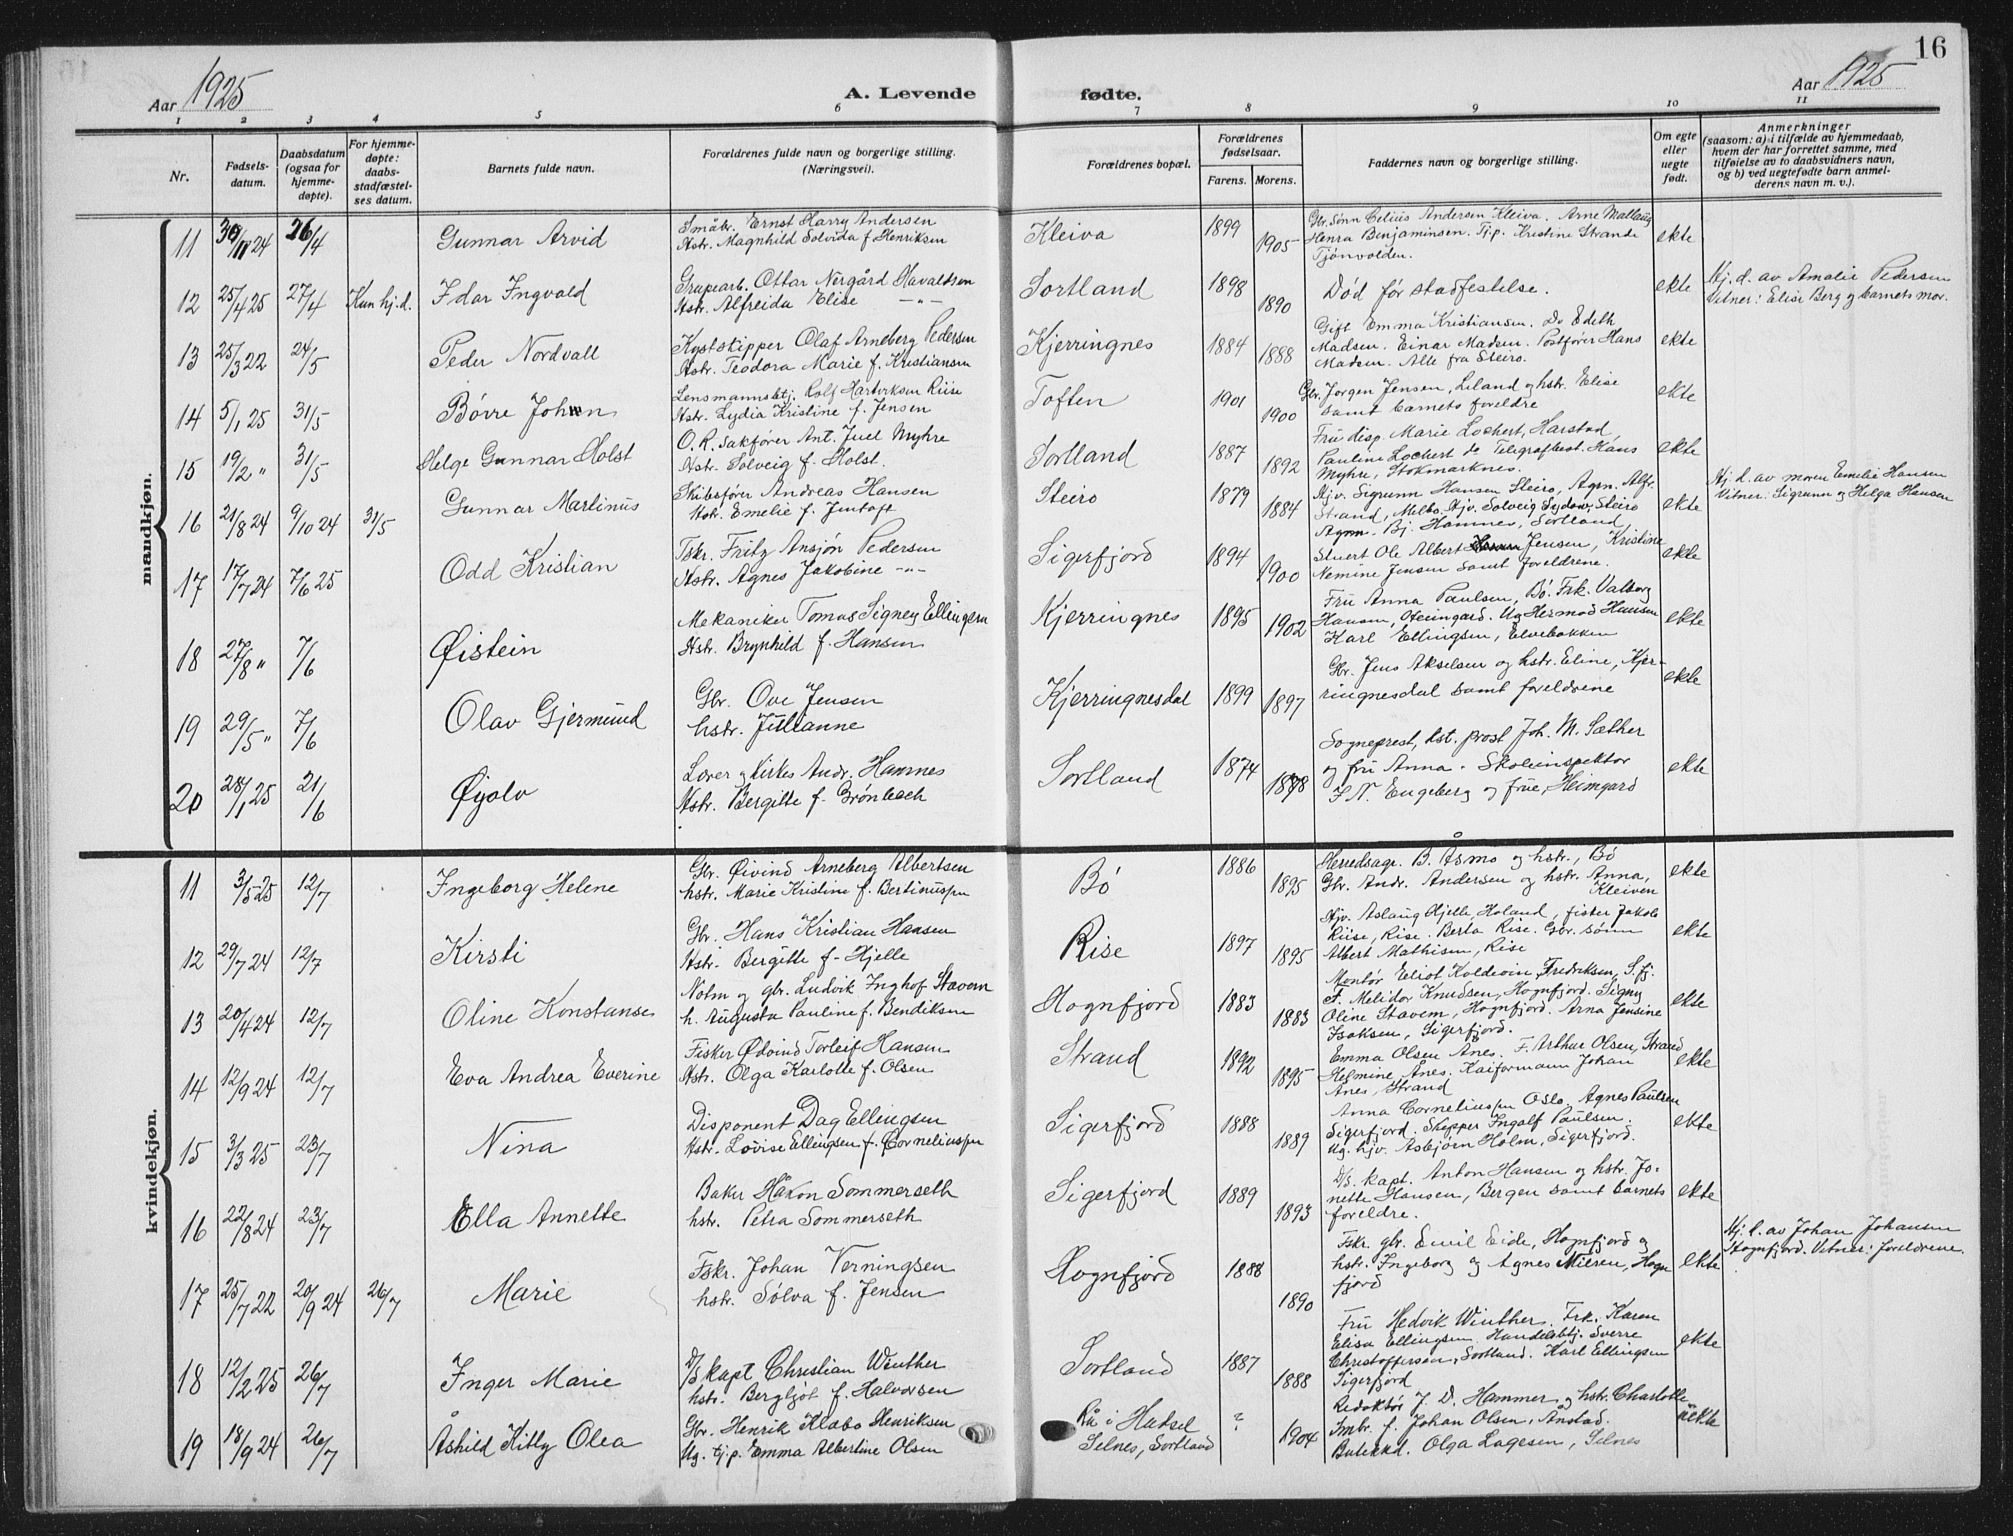 16
Aar 1925
A. Levende fødte.
Aar 1925
1 2 3 4 5 6 7 8 9 10 11
Nr.
Fødsels-
datum.
Daabsdatum
(ogsaa for
hjemme-
døpte).
For hjemme-
døpte:
daabs-
stadfæstel-
ses datum.
Barnets fulde navn.
Forældrenes fulde navn og borgerlige stilling.
(Næringsvei).
Forældrenes bopæl.
Forældrenes
fødselsaar.
Farens. Morens.
Faddernes navn og borgerlige stilling.
Om egte
eller
uegte
født.
Anmerkninger
(saasom: a) i tilfælde av hjemmedaab,
hvem der har forrettet samme, med
tilføielse av to daabsvidners navn,
og b) ved uegtefødte barn anmel-
derens navn m. v.).
mandkjøn.
11 30/11 24 26/4 Gunnar Arvid
Småbr. Ernst Harry Andersen
Hstr. Magnhild Solvida f Henriksen
Kleiva 1899 1905
Gbr. Sønn Celius Andersen Kleiva. Arne
Henra Benjaminsen. Tj.p. Kristine Strande
Tjønvolden.
ekte
12 25/4 25 27/4 Kun hj.d. Idar Ingvald
Grupearb. Ottar Nergård Havaldsen
Hstr. Alfreida Elise -"-
Sortland 1898 1890
Død før stadfestelse.
ekte
Hj. d. av Amalie Pedersen
Vitner: Elise Berg og barnets mor.
13 25/3 22 24/5 Peder Nordvall
Kystskipper Olaf Arneberg Pedersen
Hstr. Teodora Marie f. Kristiansen
Kjerringnes 1884 1888
Gift Emma Kristiansen. Do Edith
Madsen. Einar Madsen. Postfører Hans
Madsen. Alle fra Steiro.
ekte
14 5/1 25 31/5 Børre Johan
Lensmannsbtj. Rolf Hartviksen Riise
Hstr. Lydia Kristine f. Jensen
Toften 1901 1900
Gbr. Jørgen Jensen, Liland og hstr. Elise
samt barnets foreldre
ekte
15 19/2 " 31/5 Helge Gunnar Holst
O. R. Sakfører Ant. Juel Myhre
Hstr. Solveig f. Holst.
Sortland 1887 1892
Fru disp. Marie Lochert, Harstad
Pauline Lochert do Telegrafbest. Hans
Myhre, Stokmarknes.
ekte
16 21/8 24 9/10 24 31/5 Gunnar Martinus
Skibsfører Andreas Hansen
Hstr. Emelie f. Jentoft
Steiro 1879 1884
Hjv. Sigrunn Hansen Steiro, Agnn. Alfr.
Strand, Melbo. Hjv. Solveig Sydow, Steiro
Agnn. Bj. Hamnes, Sortland
ekte
Hj. d. av moren Emelie Hansen
Vitner: Sigrunn og Helga Hansen
17 17/7 24 7/6 25 Odd Kristian
Fskr. Fritz Ansjøn Pedersen
Hstr. Agnes Jakobine -"-
Sigerfjord 1894 1900
Stuert Ole Albert Jensen, Kristine
Nemine Jensen samt foreldrene.
ekte
18 27/8 " 7/6 Øistein
Mekaniker Tomas Signey Ellingsen
Hstr. Brynhild f. Hansen
Kjerringnes 1895 1902
Fru Anna Paulsen, Bö. Frk. Valborg
Hansen, Steingard. Ug Hermod Hansen
Karl Ellingsen, Elvebakken
ekte
19 29/5 " 7/6 Olav Gjermund
Gbr. Ove Jensen
hstr. Julianne
Kjerringnesdal 1899 1897
Gbr. Jens Akselsen og hstr. Eline, Kjer-
ringnesdal samt foreldrene
ekte
20 28/1 25 21/6 Øyolv
Lærer og Kirkes. Andr. Hamnes
Hstr. Bergitte f. Grönbech
Sortland 1874 1878
Sogneprest, kst. prost Joh. M. Sæther
og fru Anna. Skoleinspektør
F. N. Engeberg og frue, Heimgard
ekte
kvindekjøn.
11 3/5 25 12/7 Ingeborg Helene
Gbr. Øivind Arneberg Albertsen
hstr. Marie Kristine f. Bertinussen
Bö 1886 1895
Herredsagr. B. Åsmo og hstr., Bö
Gbr. Andr. Andersen og hstr. Anna,
Kleiven
ekte
12 29/7 24 12/7 Kirsti
Gbr. Hans Kristian Hansen
Hstr. Bergitte f. Hjelle
Rise 1897 1895
Hjv. Aslaug Hjelle, Holand, fisker Jakob
Riise, Rise. Berta Rise. Gbr. sönn
Albert Mathisen, Rise
ekte
13 20/4 24 12/7 Oline Konstanse
Notm og gbr. Ludvik Inghof Stavem
h. Augusta Pauline f. Bendiksen
Hognfjord 1883 1883
Montør Eliot Koldevin Fredriksen, S.fj.
F. Melidor Knudsen, Hognfjord. Signy
Oline Stavem, Hognfjord. Arna Jensine
Isaksen, Sigerfjord.
ekte
14 12/9 24 12/7 Eva Andrea Everine
Fisker Ødvind Torleif Hansen
Hstr. Olga Karlotte f. Olsen
Strand 1892 1895
Emma Olsen Ånes. F. Arthur Olsen, Strand
Helmine Ånes. Kaiformann Johan
Ånes, Strand
ekte
15 3/3 25 23/7 Nina
Disponent Dag Ellingsen
Hstr. Lovise Ellingsen f. Corneliussen
Sigerfjord 1888 1889
Anna Corneliussen Oslo. Agnes Paulsen
Sigerfjord. Skipper Ingolf Paulsen.
Ug. hjv. Asbjørn Holm, Sigerfjord.
ekte
16 22/8 24 23/7 Ella Annette
Baker Håkon Sommerseth
hstr. Petra Sommerseth
Sigerfjord 1889 1893
D/S. kapt. Anton Hansen og hstr. Jo-
nette Hansen, Bergen samt barnets
foreldre.
ekte
17 25/7 22 20/9 24 26/7 Marie
Fskr. Johan Verningsen
hstr. Sølva f. Jensen
Hognfjord 1888 1890
Fskr. gbr. Emil Eide, Hognfjord og
hstr. Ingeborg og Agnes Nilsen, Hogn
fjord
ekte
Hj. d. av Johan Johansen
Hognfjord. Vitner: foreldrene.
18 12/2 25 26/7 Inger Marie
D/S kapt Christian Winther
hstr. Bergljot f. Halvorsen
Sortland 1887 1888
Fru Hedvik Winther. Frk. Karen
Elisa Ellingsen. Handelsbtj. Sverre
Christoffersen, Sortland. Karl Ellingsen
Sigerfjord
ekte
19 18/9 24 26/7 Åshild Kitty Olea
Gbr. Henrik Klabo Henriksen
Ug. tj.p. Emma Albertine Olsen
Rå i Hadsel
Selnes, Sortland
? 1904
Redaktør J. D. Hammer og hstr. Charlotte
Smbr. f. Johan Olsen, Ånstad.
Butekkd. Olga Lagesen, Selnes
uekte